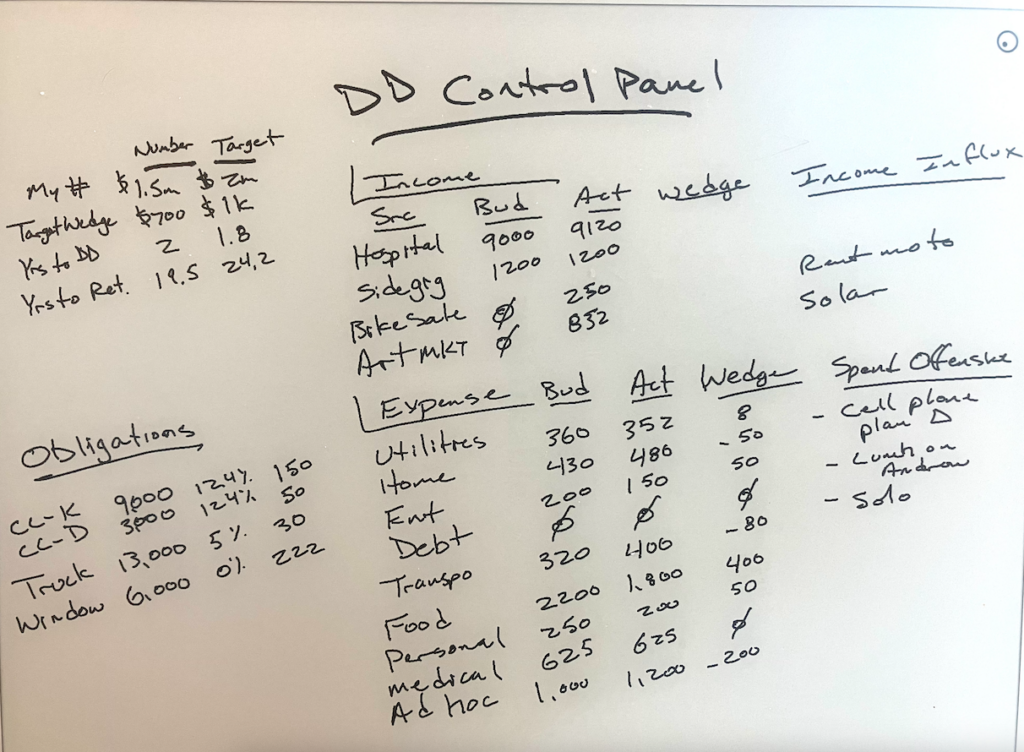 DD Control Panel
Number Target
My # $1.5m $2m
Target Wedge $700 $1k
Yrs to DD 2 1.8
Yrs to Ret. 19.5 24.2
Obligations
CC-K 9000 12.4% 150
CC-D 3000 12.4% 50
Truck 13,000 5% 30
Window 6,000 0% 222
Income
Src Bud Act Wedge
Hospital 9000 9120
Sidegig 1200 1200
Bike Sale Ø 250
Art MKT Ø 832
Income Influx
Rent moto
Solar
Expense Bud Act Wedge
Utilities 360 352 8
Home 430 480 -50
Ent 200 150 50
Debt Ø Ø Ø
Transpo 320 400 -80
Food 2200 1,800 400
Personal 250 200 50
medical 625 625 Ø
Ad Hoc 1,000 1,200 -200
Spend Offensive
- Cell phone
plan D
- on
Andrew
- Solo